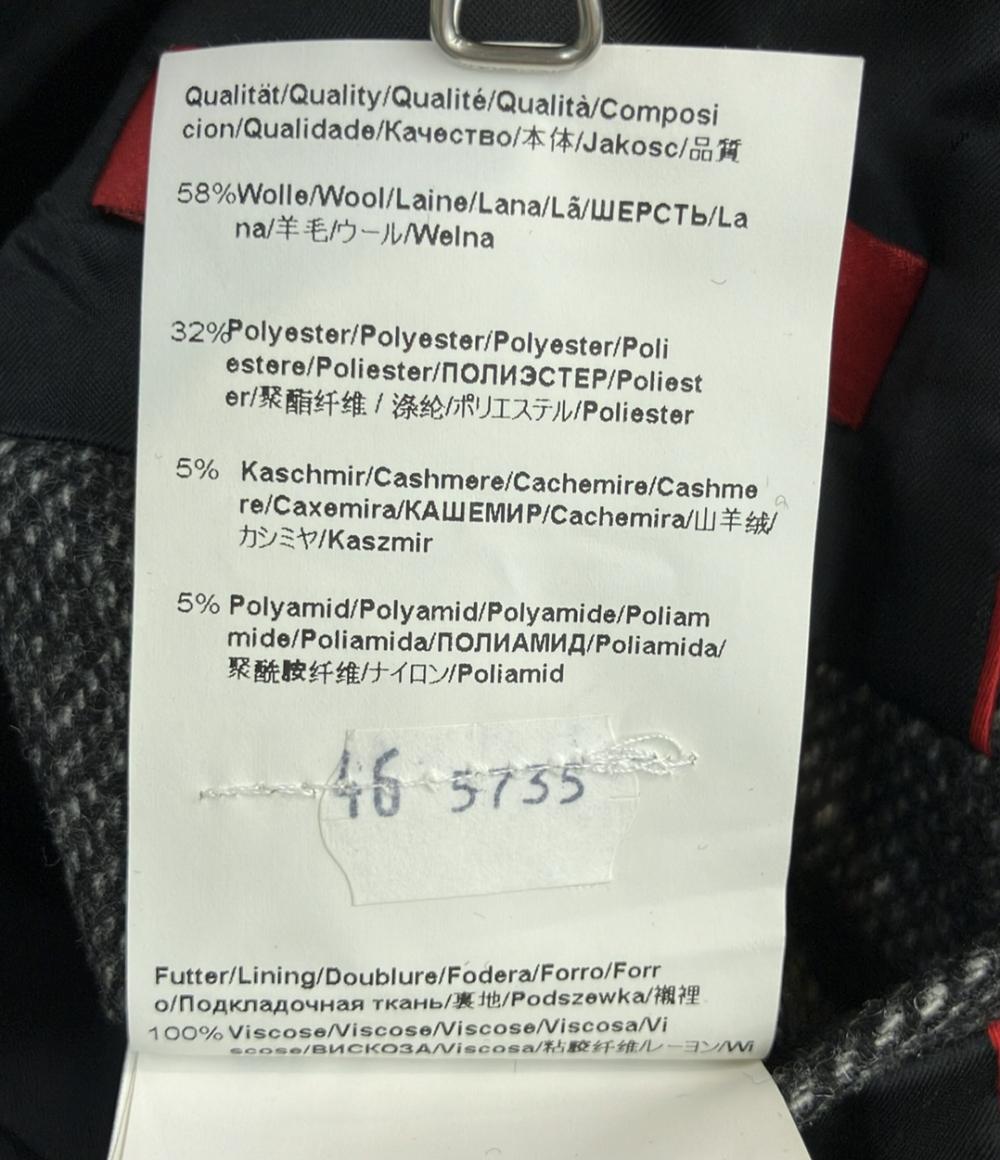 Qualität/Quality/Qualité/Qualità/Composi
cion/Qualidade/Качество/本体/Jakosc/品質
58%Wolle/Wool/Laine/Lana/Lã/ШЕРСТЬ/La
na/羊毛/ウール/Welna
32%Polyester/Polyester/Polyester/Poli
estere/Poliester/ПОЛИЭСТЕР/Poliest
er/聚酯纤维 / 涤纶/ポリエステル/Poliester
5% Kaschmir/Cashmere/Cachemire/Cashme
re/Caxemira/КАШЕМИР/Cachemira/山羊绒/
カシミヤ/Kaszmir
5% Polyamid/Polyamid/Polyamide/Poliam
mide/Poliamida/ПОЛИАМИД/Poliamida/
聚酰胺纤维/ナイロン/Poliamid
46 5735
Futter/Lining/Doublure/Fodera/Forro/Forr
o/Подкладочная ткань/裏地/Podszewka/襯裡
100% Viscose/Viscose/Viscose/Viscosa/Vi
scose/ВИСКОЗА/Viscosa/粘胶纤维/レーヨン/Wi